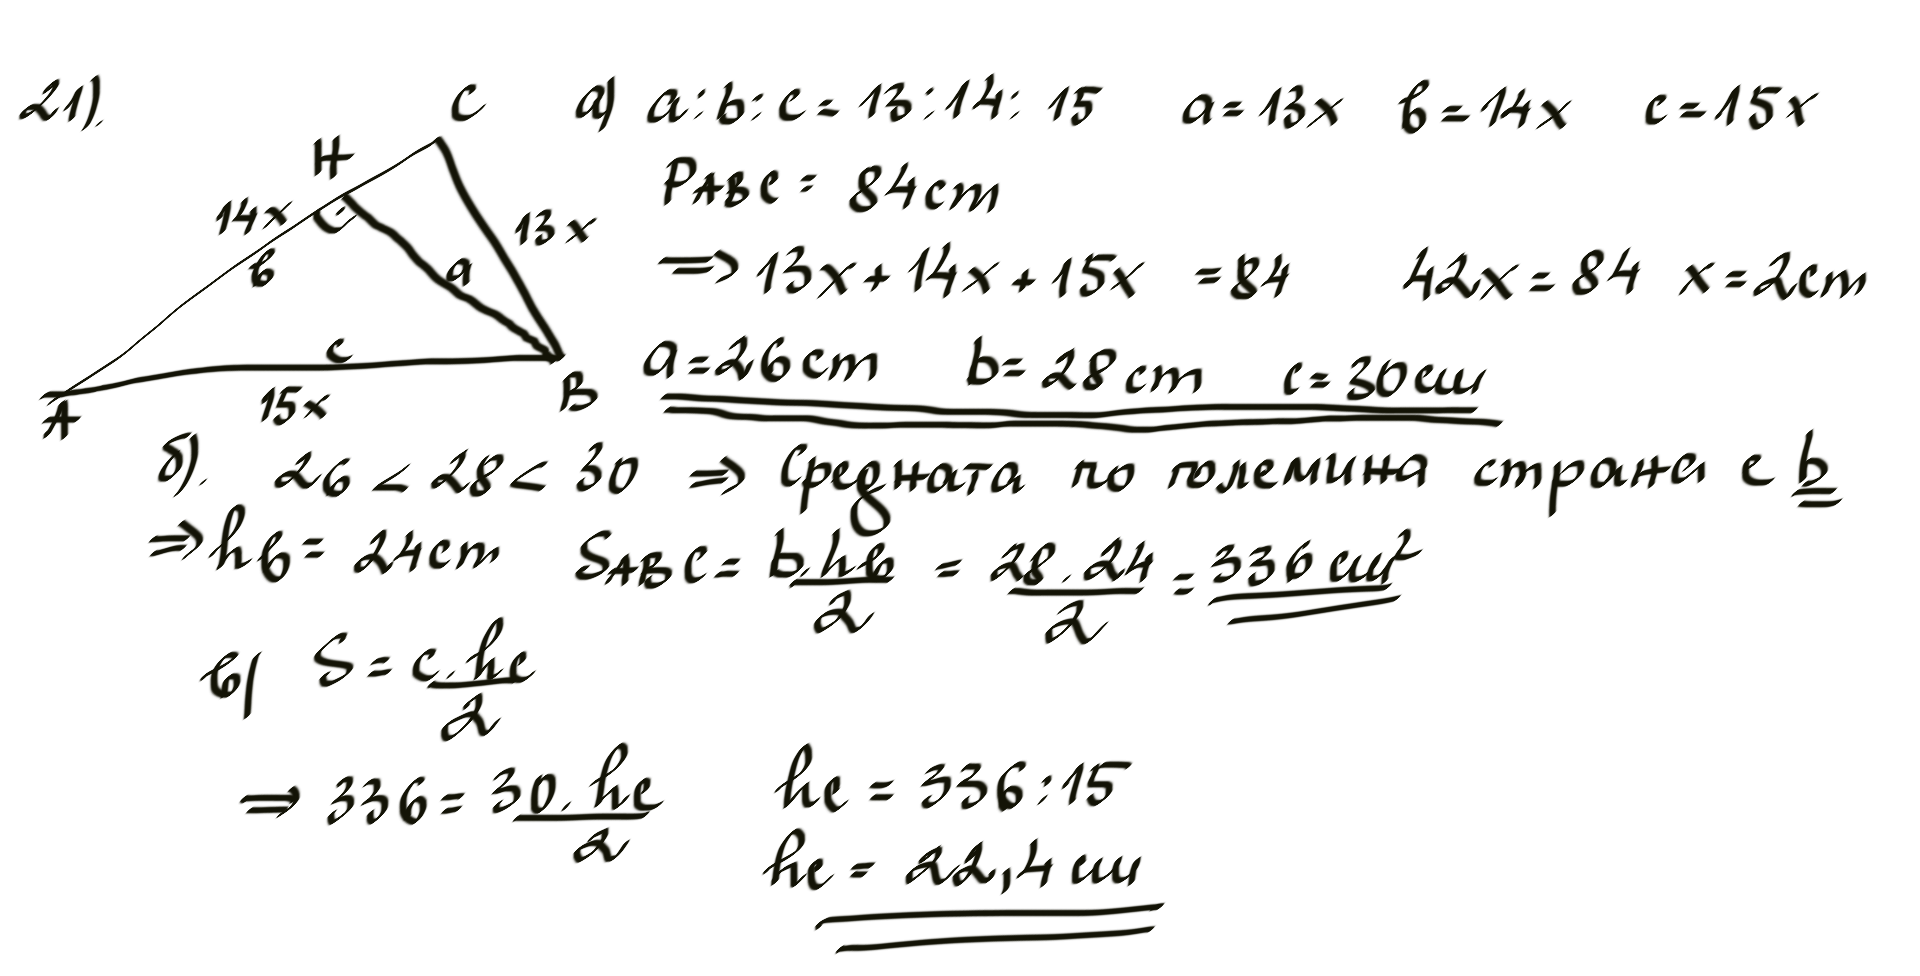 21).
C
H
14x
в
13x
a
c
15x
A
B
а) a:b:c = 13:14:15 a=13x в=14x c=15x
PABC = 84cm
⇒ 13x + 14x + 15x = 84 42x = 84 x = 2cm
a=26cm b=28cm c=30cm
б). 26 < 28 < 30 ⇒ Средната по големина страна е b
⇒ hв = 24cm SABC = b.hв/2 = 28.24/2 = 336 cm²
в) S = c.hc/2
⇒ 336 = 30.hc/2 hc = 336:15
hc = 22,4 cm